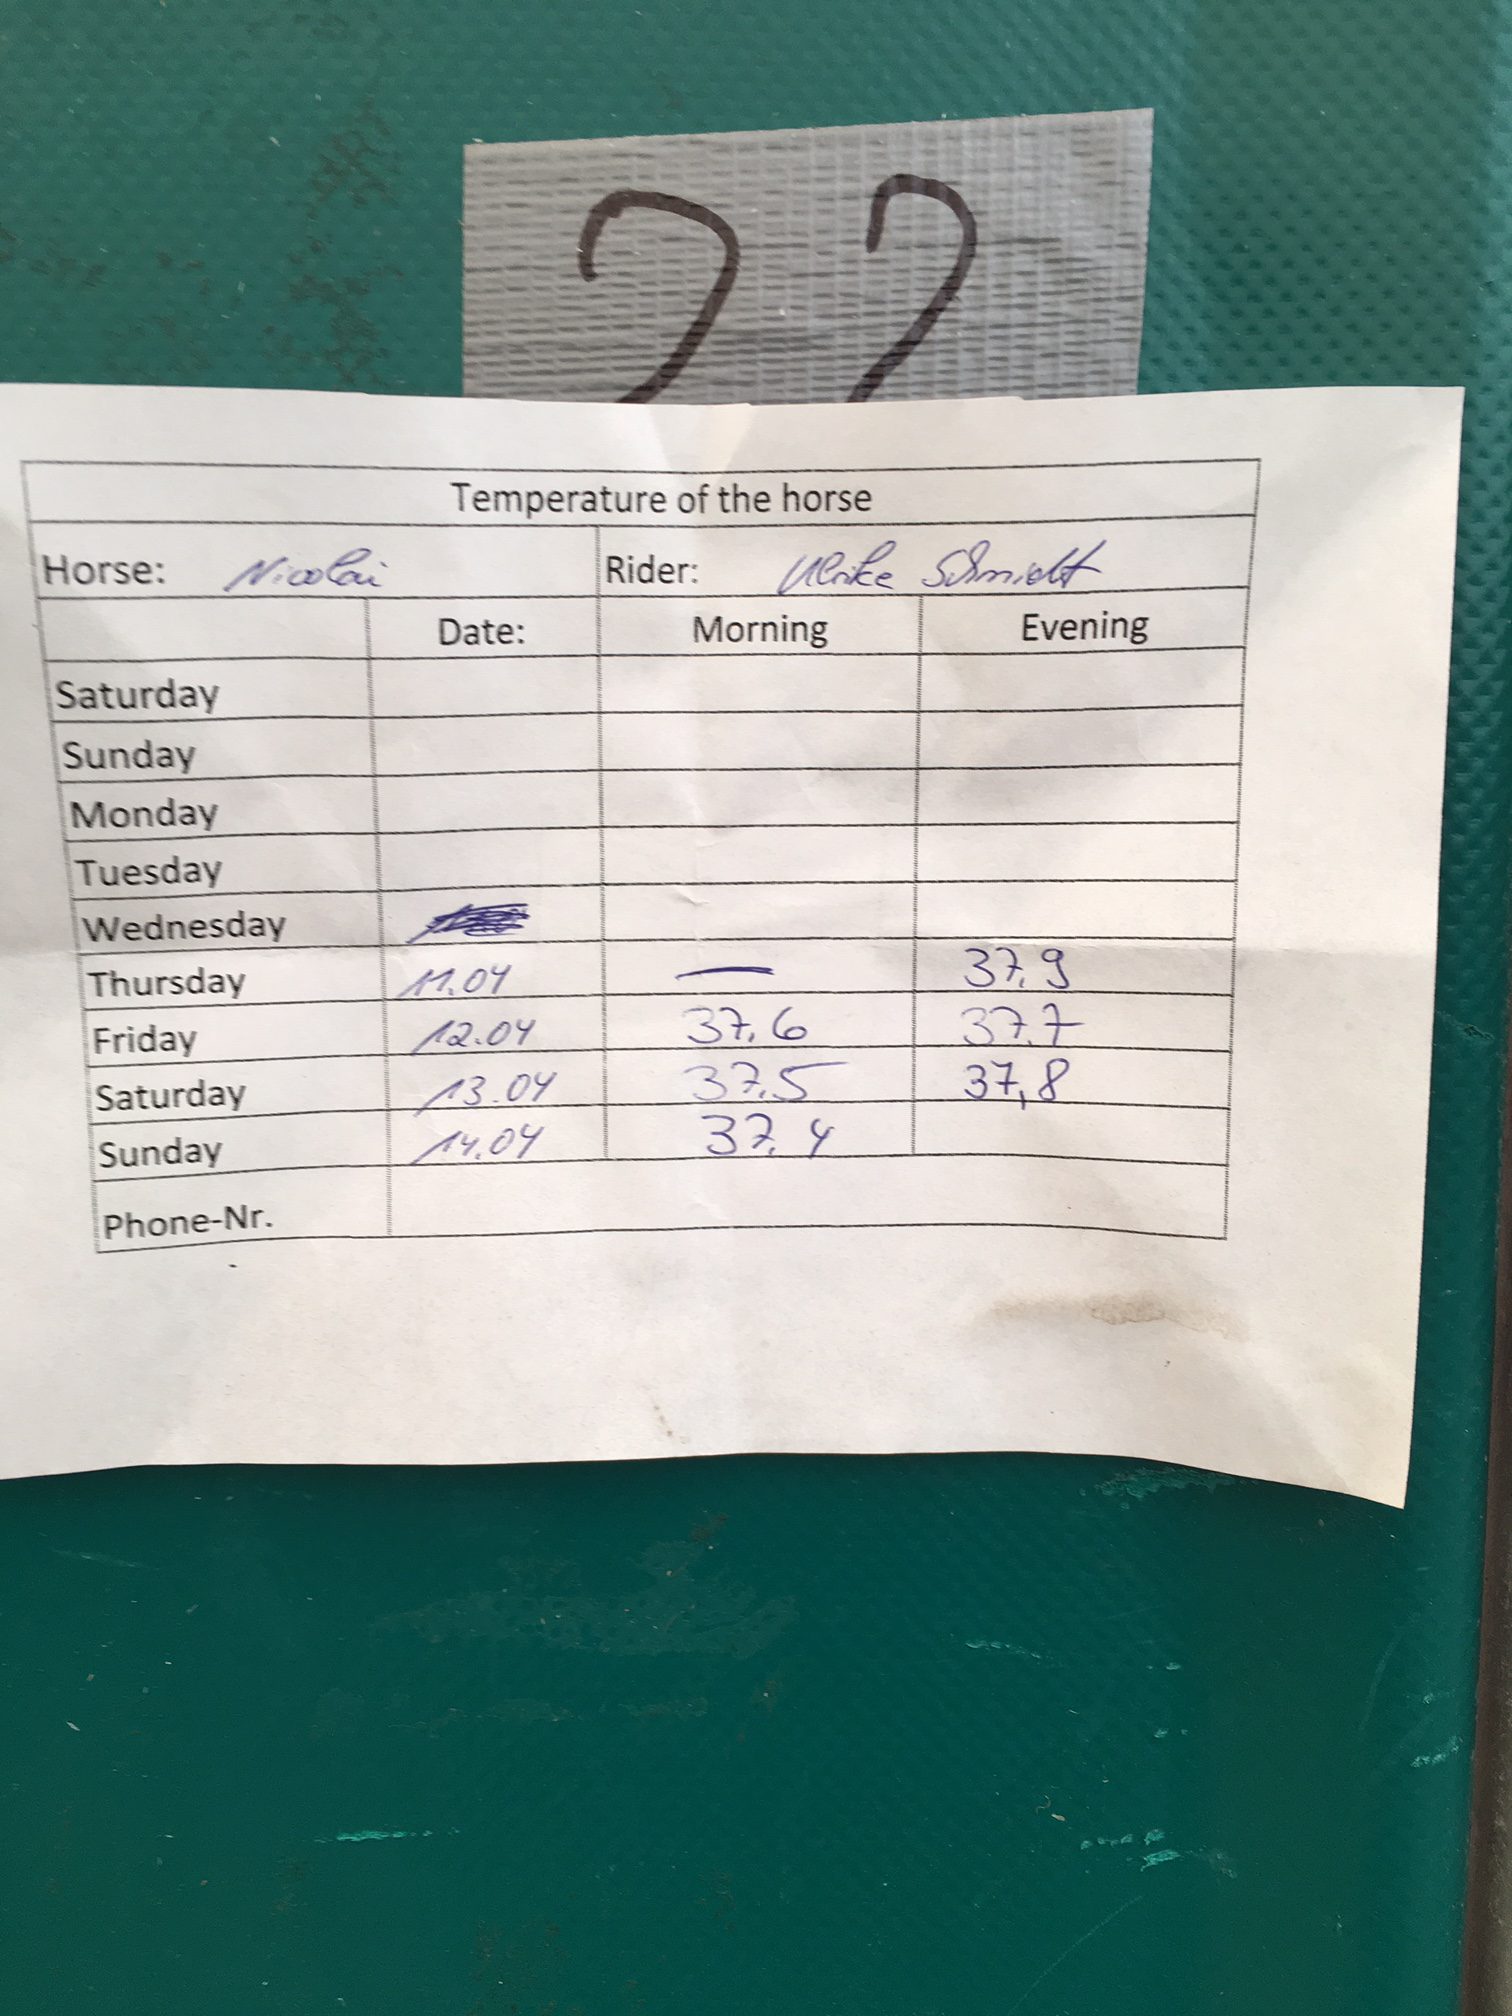 22
Temperature of the horse
Horse: Nicolai Rider: Ulrike Schmidt
Date: Morning Evening
Saturday
Sunday
Monday
Tuesday
Wednesday
Thursday 11.04 — 37.9
Friday 12.04 37.6 37.7
Saturday 13.04 37.5 37,8
Sunday 14.04 37.4
Phone-Nr.